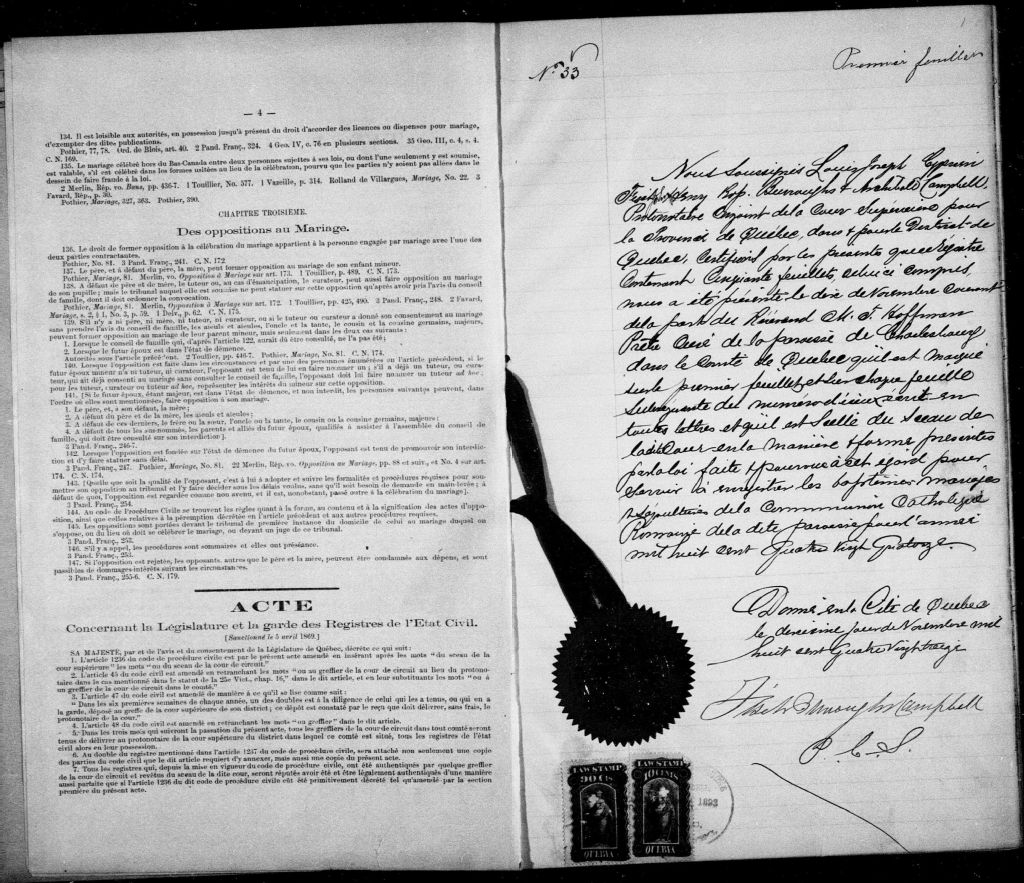 — 4 —
134. Il est loisible aux autorités, en possession jusqu'à présent du droit d'accorder des licences ou dispenses pour mariage,
d'exempter des dites publications.
Pothier, 77, 78. Ord. de Blois, art. 40. 2 Pand. Franç., 324. 4 Geo. IV, c. 76 en plusieurs sections. 35 Geo. III, c. 4, s. 4.
C. N. 169.
135. Le mariage célébré hors du Bas-Canada entre deux personnes sujettes à ses lois, ou dont l'une seulement y est soumise,
est valable, s'il est célébré dans les formes usitées au lieu de la célébration, pourvu que les parties n'y soient pas allées dans le
dessein de faire fraude à la loi.
2 Merlin, Rép. vo. Bans, pp. 436-7. 1 Touillier, No. 577. 1 Vazeille, p. 314. Rolland de Villargues, Mariage, No. 22. 3
Favard, Rép., p. 30.
Pothier, Mariage, 327, 363. Pothier, 390.
CHAPITRE TROISIÈME.
Des oppositions au Mariage.
136. Le droit de former opposition à la célébration du mariage appartient à la personne engagée par mariage avec l'une des
deux parties contractantes.
Pothier, No. 81. 3 Pand. Franç., 241. C. N. 172
137. Le père, et à défaut du père, la mère, peut former opposition au mariage de son enfant mineur.
Pothier, Mariage, 81. Merlin, vo. Opposition à Mariage sur art. 173. 1 Touillier, p. 489. C. N. 173.
138. A défaut de père et de mère, le tuteur ou, au cas d'émancipation, le curateur, peut aussi faire opposition au mariage
de son pupille; mais le tribunal auquel elle est soumise ne peut statuer sur cette opposition qu'après avoir pris l'avis du conseil
de famille, dont il doit ordonner la convocation.
Pothier, Mariage, 81. Merlin, Opposition à Mariage sur art. 172. 1 Touillier, pp. 425, 490. 3 Pand. Franç., 248. 2 Favard,
Mariage, s. 2, § 1, No. 3, p. 59. 1 Delv., p. 62. C. N. 175.
139. S'il n'y a ni père, ni mère, ni tuteur, ni curateur, ou si le tuteur ou curateur a donné son consentement au mariage
sans prendre l'avis du conseil de famille, les aïeuls et aïeules, l'oncle et la tante, le cousin et la cousine germains, majeurs,
peuvent former opposition au mariage de leur parent mineur, mais seulement dans les deux cas suivants:
1. Lorsque le conseil de famille qui, d'après l'article 122, aurait dû être consulté, ne l'a pas été;
2. Lorsque le futur époux est dans l'état de démence.
Autorités sous l'article précédent. 2 Touillier, pp. 446-7. Pothier, Mariage, No. 81. C. N. 174.
140. Lorsque l'opposition est faite dans les circonstances et par une des personnes énumérées en l'article précédent, si le
futur époux mineur n'a ni tuteur, ni curateur, l'opposant est tenu de lui en faire nommer un; s'il a déjà un tuteur, ou cura-
teur, qui ait déjà consenti au mariage sans consulter le conseil de famille, l'opposant doit lui faire nommer un tuteur ad hoc;
pour les tuteur, curateur ou tuteur ad hoc, représenter les intérêts du mineur sur cette opposition.
141. [Si le futur époux, étant majeur, est dans l'état de démence, et non interdit, les personnes suivantes peuvent, dans
l'ordre où elles sont mentionnées, faire opposition à son mariage.
1. Le père, et, à son défaut, la mère;
2. A défaut du père et de la mère, les aïeuls et aïeules;
3. A défaut de ces derniers, le frère ou la sœur, l'oncle ou la tante, le cousin ou la cousine germains, majeurs;
4. A défaut de tous les sus-nommés, les parents et alliés du futur époux, qualifiés à assister à l'assemblée du conseil de
famille, qui doit être consulté sur son interdiction]
3 Pand. Franç., 246-7.
142. Lorsque l'opposition est fondée sur l'état de démence du futur époux, l'opposant est tenu de promouvoir son interdic-
tion et d'y faire statuer sans délai.
3 Pand. Franç., 247. Pothier, Mariage, No. 81. 22 Merlin, Rép. vo. Opposition au Mariage, pp. 88 et suiv., et No. 4 sur art.
174. C. N. 174.
143. [Quelle que soit la qualité de l'opposant, c'est à lui à adopter et suivre les formalités et procédures requises pour sou-
mettre son opposition au tribunal et l'y faire décider sous les délais voulus, sans qu'il soit besoin de demande en main-levée; à
défaut de quoi, l'opposition est regardée comme non avenu, et il est, nonobstant, passé outre à la célébration du mariage].
3 Pand. Franç., 254.
144. Au code de Procédure Civile se trouvent les règles quant à la forme, au contenu et à la signification des actes d'oppo-
sition, ainsi que celles relatives à la péremption décrétée en l'article précédent et aux autres procédures requises.
145. Les oppositions sont portées devant le tribunal de première instance du domicile de celui au mariage duquel on
s'oppose, ou du lieu où doit se célébrer le mariage, ou devant un juge de ce tribunal.
3 Pand. Franç., 252.
146. S'il y a appel, les procédures sont sommaires et elles ont préséance.
3 Pand. Franç., 253.
147. Si l'opposition est rejetée, les opposants, autres que le père et la mère, peuvent être condamnés aux dépens, et sont
passibles de dommages-intérêts suivant les circonstances.
3 Pand. Franç., 255-6. C. N. 179.
ACTE
Concernant la Législature et la garde des Registres de l'Etat Civil.
[Sanctionné le 5 avril 1869.]
SA MAJESTE, par et de l'avis et du consentement de la Législature de Québec, décrète ce qui suit:
1. L'article 1236 du code de procédure civile est par le présent acte amendé en insérant après les mots "du sceau de la
cour supérieure" les mots "ou du sceau de la cour de circuit."
2. L'article 45 du code civil est amendé en retranchant les mots "ou au greffier de la cour de circuit au lieu du protono-
taire dans le cas mentionné dans le statut de la 25e Vict., chap. 16," dans le dit article, et en leur substituants les mots "ou à
un greffier de la cour de circuit dans le comté."
3. L'article 47 du code civil est amendé de manière à ce qu'il se lise comme suit:
"Dans les six premières semaines de chaque année, un des doubles est à la diligence de celui qui les a tenus, ou qui en a
la garde, déposé au greffe de la cour supérieure de son district; ce dépôt est constaté par le reçu que doit délivrer, sans frais, le
protonotaire de la cour."
4. L'article 48 du code civil est amendé en retranchant les mots "ou greffier" dans le dit article.
5. Dans les trois mois qui suivront la passation du présent acte, tous les greffiers de la cour de circuit dans tout comté seront
tenus de délivrer au protonotaire de la cour supérieure du district dans lequel ce comté est situé, tous les registres de l'état
civil alors en leur possession.
6. Au double du registre mentionné dans l'article 1237 du code de procédure civile, sera attaché non seulement une copie
des parties du code civil que le dit article requiert d'y annexer, mais aussi une copie du présent acte.
7. Tous les registres qui, depuis la mise en vigueur du code de procédure civile, ont été authentiqués par quelque greffier
de la cour de circuit et revêtus du sceau de la dite cour, seront réputés avoir été et être légalement authentiqués d'une manière
aussi parfaite que si l'article 1236 du dit code de procédure civile eût été primitivement décrété tel qu'amendé par la section
première du présent acte.
1
No 33
Premier feuillet
Nous Soussignés Louis Joseph Cyprien
Fiset, Henry Burroughs & Archibald Campbell,
Protonotaire Conjoint de la Cour Supérieure pour
la Province de Québec, dans & pour le District de
Québec, Certifions par les présents que ce registre
Contenant Cinquante feuillets celui-ci compris,
nous a été présenté le dix de Novembre Courant
de la part du Révérend M. F. Hoffman
Prêtre Curé de la paroisse de Charlesbourg
dans le Comté de Québec qu'il est marqué
sur le premier feuillet et sur chaque feuille
subséquente du numéro d'iceux écrit en
toutes lettres et qu'il est Scellé du Sceau de
la dite Cour en la manière & forme présentés
par la loi faite & pourvue à cet égard pour
servir à enregistrer les baptêmes, mariages
& Sépultures de la Communion Catholique
Romaine de la dite paroisse pour l'année
mil huit cent Quatre Vingt Quatorze.
Donné en la Cité de Québec
le deuxième jour de Novembre mil
huit cent Quatre Vingt treize
Fiset Burroughs Campbell
P. C. S.
LAW STAMP
20 CTS
QUEBEC
LAW STAMP
10 CENTS
QUEBEC
1893